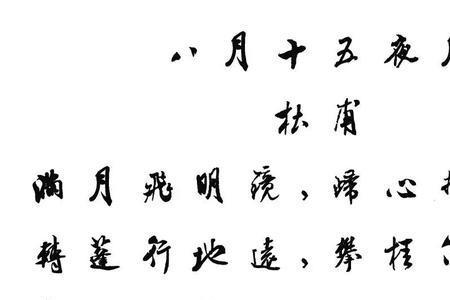 八月十五夜月
杜甫
滿月飛明鏡，歸心
轉蓬行地遠，攀桂